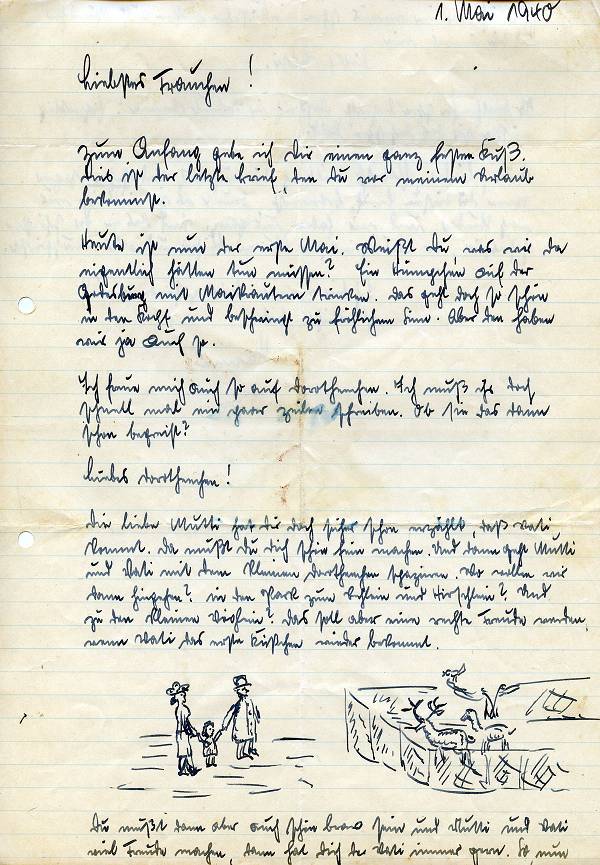 1. Mai 1940
Liebstes Frauchen!
Zum Anfang gebe ich Dir einen ganz festen Kuß.
Dies ist der letzte Brief, den Du vor meinem Urlaub
bekommst.
Heute ist nun der erste Mai. Weißt Du, was wir da
eigentlich hätten tun müssen? Ein auf der
mit Maikräutern trinken. Das geht doch so schön
in den Kopf und beschwingt zu fröhlichem Sinn. Aber den haben
wir ja auch so.
Ich freue mich auch so auf Dorothenchen. Ich muß ihr doch
schnell mal ein paar Zeilen schreiben. Ob sie das dann
schon begreift?
Liebes Dorothenchen!
Die liebe Mutti hat Dir doch sicher schon erzählt, daß Vati
kommt. Da mußt Du Dich schön fein machen. Und dann geht Mutti
und Vati mit dem kleinen Dorothenchen spazieren. Wo wollen wir
dann hingehen? in den Park zum Rehlein und Hirschlein? Und
zu den kleinen Das soll aber eine rechte Freude werden,
wenn Vati das erste Küßchen wieder bekommt.
Du mußt dann aber auch schön brav sein und Mutti und Vati
viel Freude machen, dann hat Dich der Vati immer gern. So nun